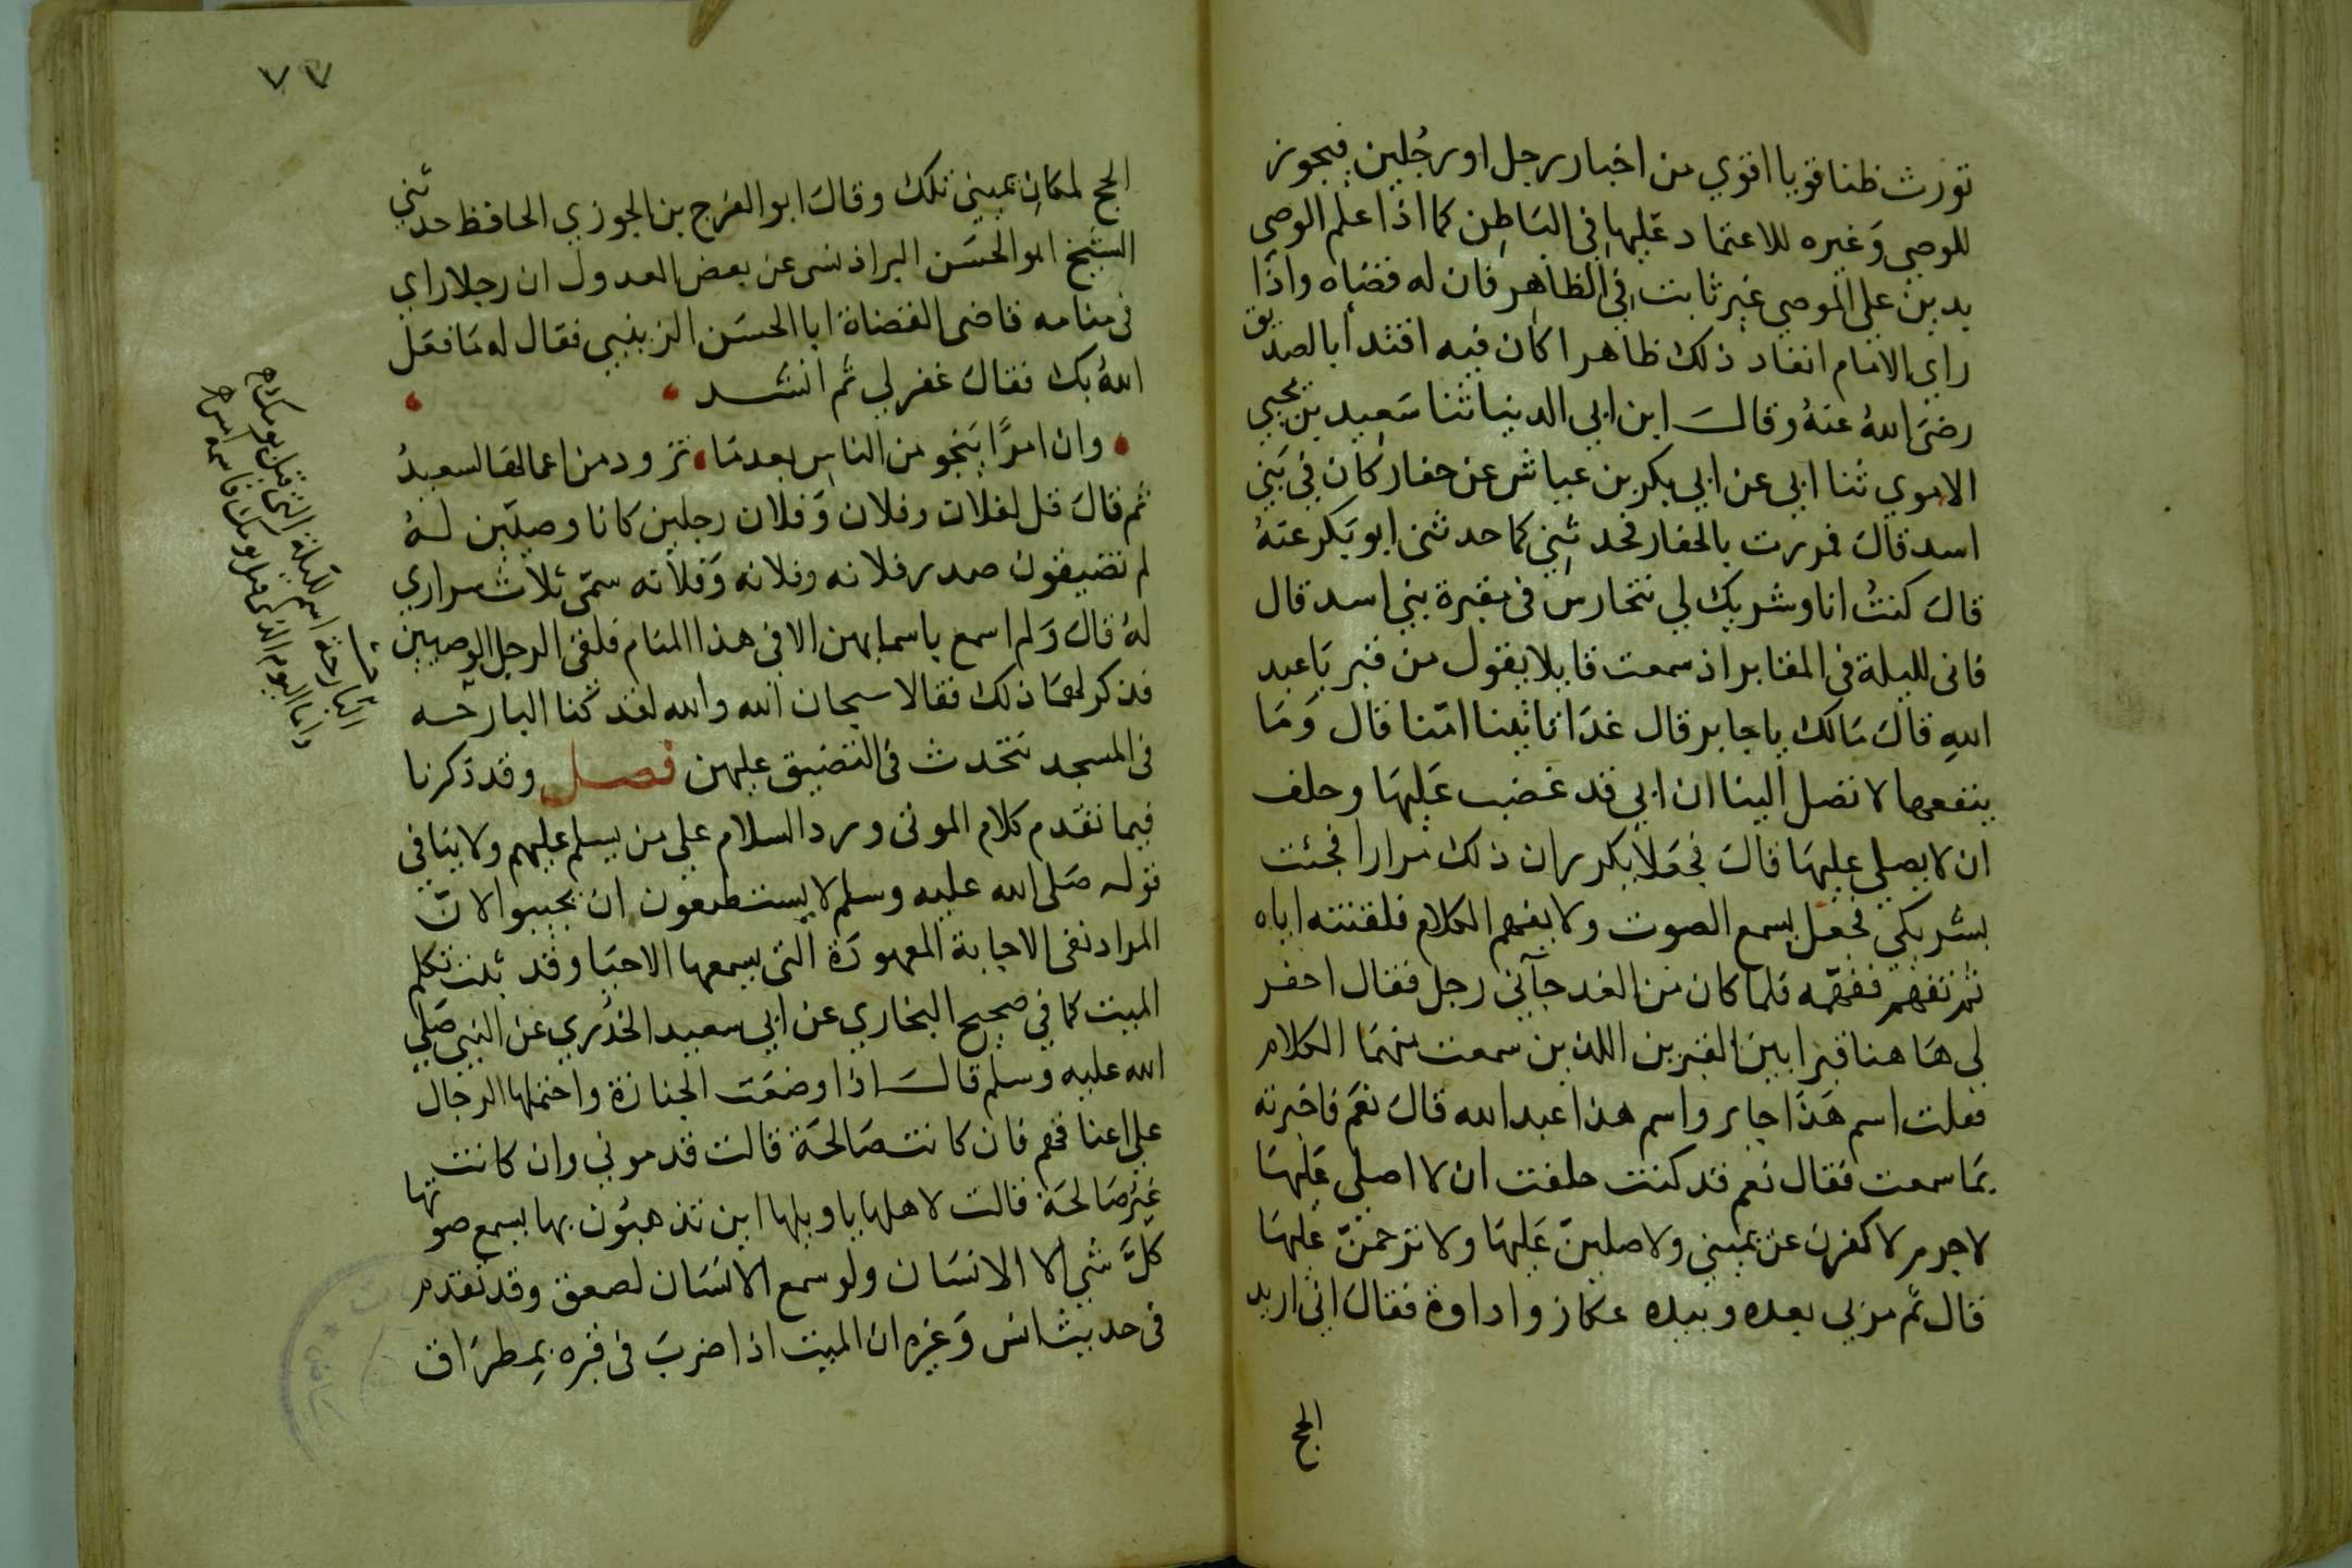 تورث ظنا قويا اقوي من اخبار رجل او رجُلين فيجوز
للوصي وَغيره للاعتماد عَليها في البَاطِن كما اذا علم الوصي
بدين علي الموصي غير ثابت في الظاهِر فان له قضاه واذا
راي الامام انفاد ذلك ظاهرا كان فيه اقتدأ بالصديق
رضيَ اللهُ عنهُ وقالَ ابن ابي الدنيا ثنا سَعِيد بن يحيي
الاموي ثنا ابي عن ابي بكر بن عياش عن حفار كان في بَني
اسد قالَ فمررت بالحفار فحدثني كما حدثنى ابو بَكر عنهُ
قالَ كنتُ انا وشريك لي نتحارس فى مقبرة بني اسد قال
فانى لليلة في المقابر اذ سمعت قايلا يقول من قبر يَا عبد
اللهِ قالَ مَالك يا جابر قال غدَا تاتينا امّنا قال وَمَا
ينفعها لا تصل الينا ان ابي قد غضب عَليهَا وحلف
ان لا يصلي عليهَا قالَ فجَعَلا يكرران ذلك مرارا فجئت
بشريكي فجعل يسمع الصوت ولا يفهم الكلام فلقنته اياه
ثم تفهم ففهمّه فلما كان من الغد جآني رجل فقال احفر
لي هَاهنا قبرا بين القبرين اللذين سمعت منهمَا الكلام
فقلت اسم هَذَا جابر واسم هذا عبد الله قالَ نعَم فاخبرته
بمَا سمعت فقال نعم قد كنت حلفت ان لا اصلي عَليهَا
لا جرم لاكفرن عن يميني ولاصلينّ عَليهَا ولاترحمنّ عليهَا
قال ثم مر بي بعده وبيده عكاز واداوة فقالَ انى اريد
الحج
٧٧
الحج لمكانِ يميني تلك وقالَ ابو الفرج بن الجوزي الحافظ حدثني
الشيخ ابو الحسَن البراذنسى عن بعض العدول ان رجلا راي
فى منامه قاضى القضاة ابا الحسَن الزينبي فقال له مَا فعَل
اللهُ بك فقالَ غفر لي ثم انشد
وان امرًا يَنجو من الناسِ بعدمَا تزود من اعمالهَا لسعيدُ
ثم قالَ قل لفلان وفلان وَفلان رجلين كانا وصيَّين لهُ
لم تضيقون صدر فلانه وفلانه وَفلانه سمّى ثلاث سراري
لهُ قالَ وَلم اسمع باسمايهن الا في هذا المنَام فلقى الرجل الوصيين
فذكر لهمَا ذلك فقالا سبحان الله والله لقد كنا البارحه
في المسجد نتحدث في التضييق عليهن فصل وقد ذكرنا
فيما تقدم كلام الموتى ورد السلام علي من يسلم عليهم ولا ينَافى
قوله صَلى الله عليه وسلم لا يستطيعون ان يجيبوا لانّ
المراد نفى الاجابة المعهودَة التى يسمعها الاحيَا وقد ثبت تكلم
الميت كما في صحيح البخاري عن ابي سعيد الخدري عن النبي صَلي
الله عليه وسلم قالَ اذا وضعَت الجنازة واحتملها الرجَال
علي اعناقهم فان كانت صَالحَة قالت قدموني وان كانت
غيرَ صَالحَة قالت لاهلها يا ويلها اين تذهبُون بها يسمع صوتها
كلَّ شي الا الانسَان ولو سمع الانسَان لصعق وقد تقدم
فى حديث انس وَغيره ان الميت اذا ضربَ فى قبره بمِطرَاق
البَارحة اسم لليلة التى قبل يومك
واما اليوم الذي قبل يومك فاسمه امس